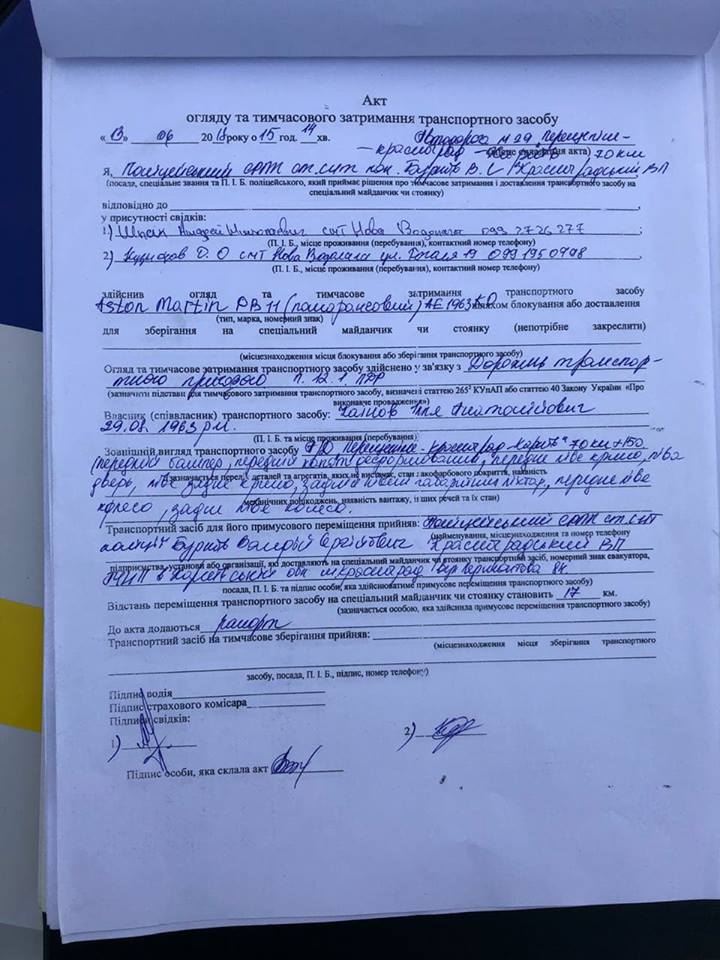 Акт
огляду та тимчасового затримання транспортного засобу
«13» 06 2018 року о 15 год. 14 хв. Автодорога М 29 Перещепино-
красноград (місце складання акта) 70 км
Я, Поліцейський СРПП ст. с-нт пол. В. С. Красноградський ВП
(посада, спеціальне звання та П. І. Б. поліцейського, який приймає рішення про тимчасове затримання і доставлення транспортного засобу на
спеціальний майданчик чи стоянку)
відповідно до
у присутності свідків:
1) Андрей смт Нова Водолага
(П. І. Б., місце проживання (перебування), контактний номер телефону)
2) О. О смт Нова Водолага ул. Гоголя 19
(П. І. Б., місце проживання (перебування), контактний номер телефону)
здійснив огляд та тимчасове затримання транспортного засобу
Aston Martin DB 11 (помарансовий) АЕ 1963 шляхом блокування або доставлення
(тип, марка, номерний знак)
для зберігання на спеціальний майданчик чи стоянку (непотрібне закреслити)
(місцезнаходження місця блокування або зберігання транспортного засобу)
Огляд та тимчасове затримання транспортного засобу здійснено у зв'язку з Дорожнь транспор-
тною пригодою п. 12.1 ПДР
(зазначити підстави для тимчасового затримання транспортного засобу, визначені статтею 265² КУпАП або статтею 40 Закону України «Про
виконавче провадження»)
Власник (співвласник) транспортного засобу: Ілля Анатолійович
29.08.1963 р.н.
(П. І. Б. та місце проживання (перебування)
Зовнішній вигляд транспортного засобу Перещепине - красноград - 70 км + 150
(передній бампер, передній капот деформований, переднє ліве крило, ліва
(зазначається перелік деталей та агрегатів, яких не вистачає, стан лакофарбового покриття, наявність
дверь, ліве заднє крило, задній лівий габаритний ліхтар, переднє ліве
механічних пошкоджень, наявність вантажу, інших речей та їх стан)
колесо, заднє ліве колесо.
Транспортний засіб для його примусового переміщення прийняв: Поліцейський СРПП ст. с-нт
(найменування, місцезнаходження та номер телефону
поліції Сергійович Красноградський ВП
підприємства, установи або організації, які доставляють на спеціальний майданчик чи стоянку транспортний засіб, номерний знак евакуатора,
ГУНП в Харківській обл м. Красноград
посада, П. І. Б. та підпис особи, яка здійснюватиме примусове переміщення транспортного засобу)
Відстань переміщення транспортного засобу на спеціальний майданчик чи стоянку становить 17 км.
(зазначається особою, яка здійснила примусове переміщення транспортного засобу)
До акта додаються рапорт
Транспортний засіб на тимчасове зберігання прийняв:
(місцезнаходження місця зберігання транспортного
засобу, посада, П. І. Б., підпис, номер телефону)
Підпис водія
Підпис страхового комісара
Підписи свідків:
1) 2)
Підпис особи, яка склала акт